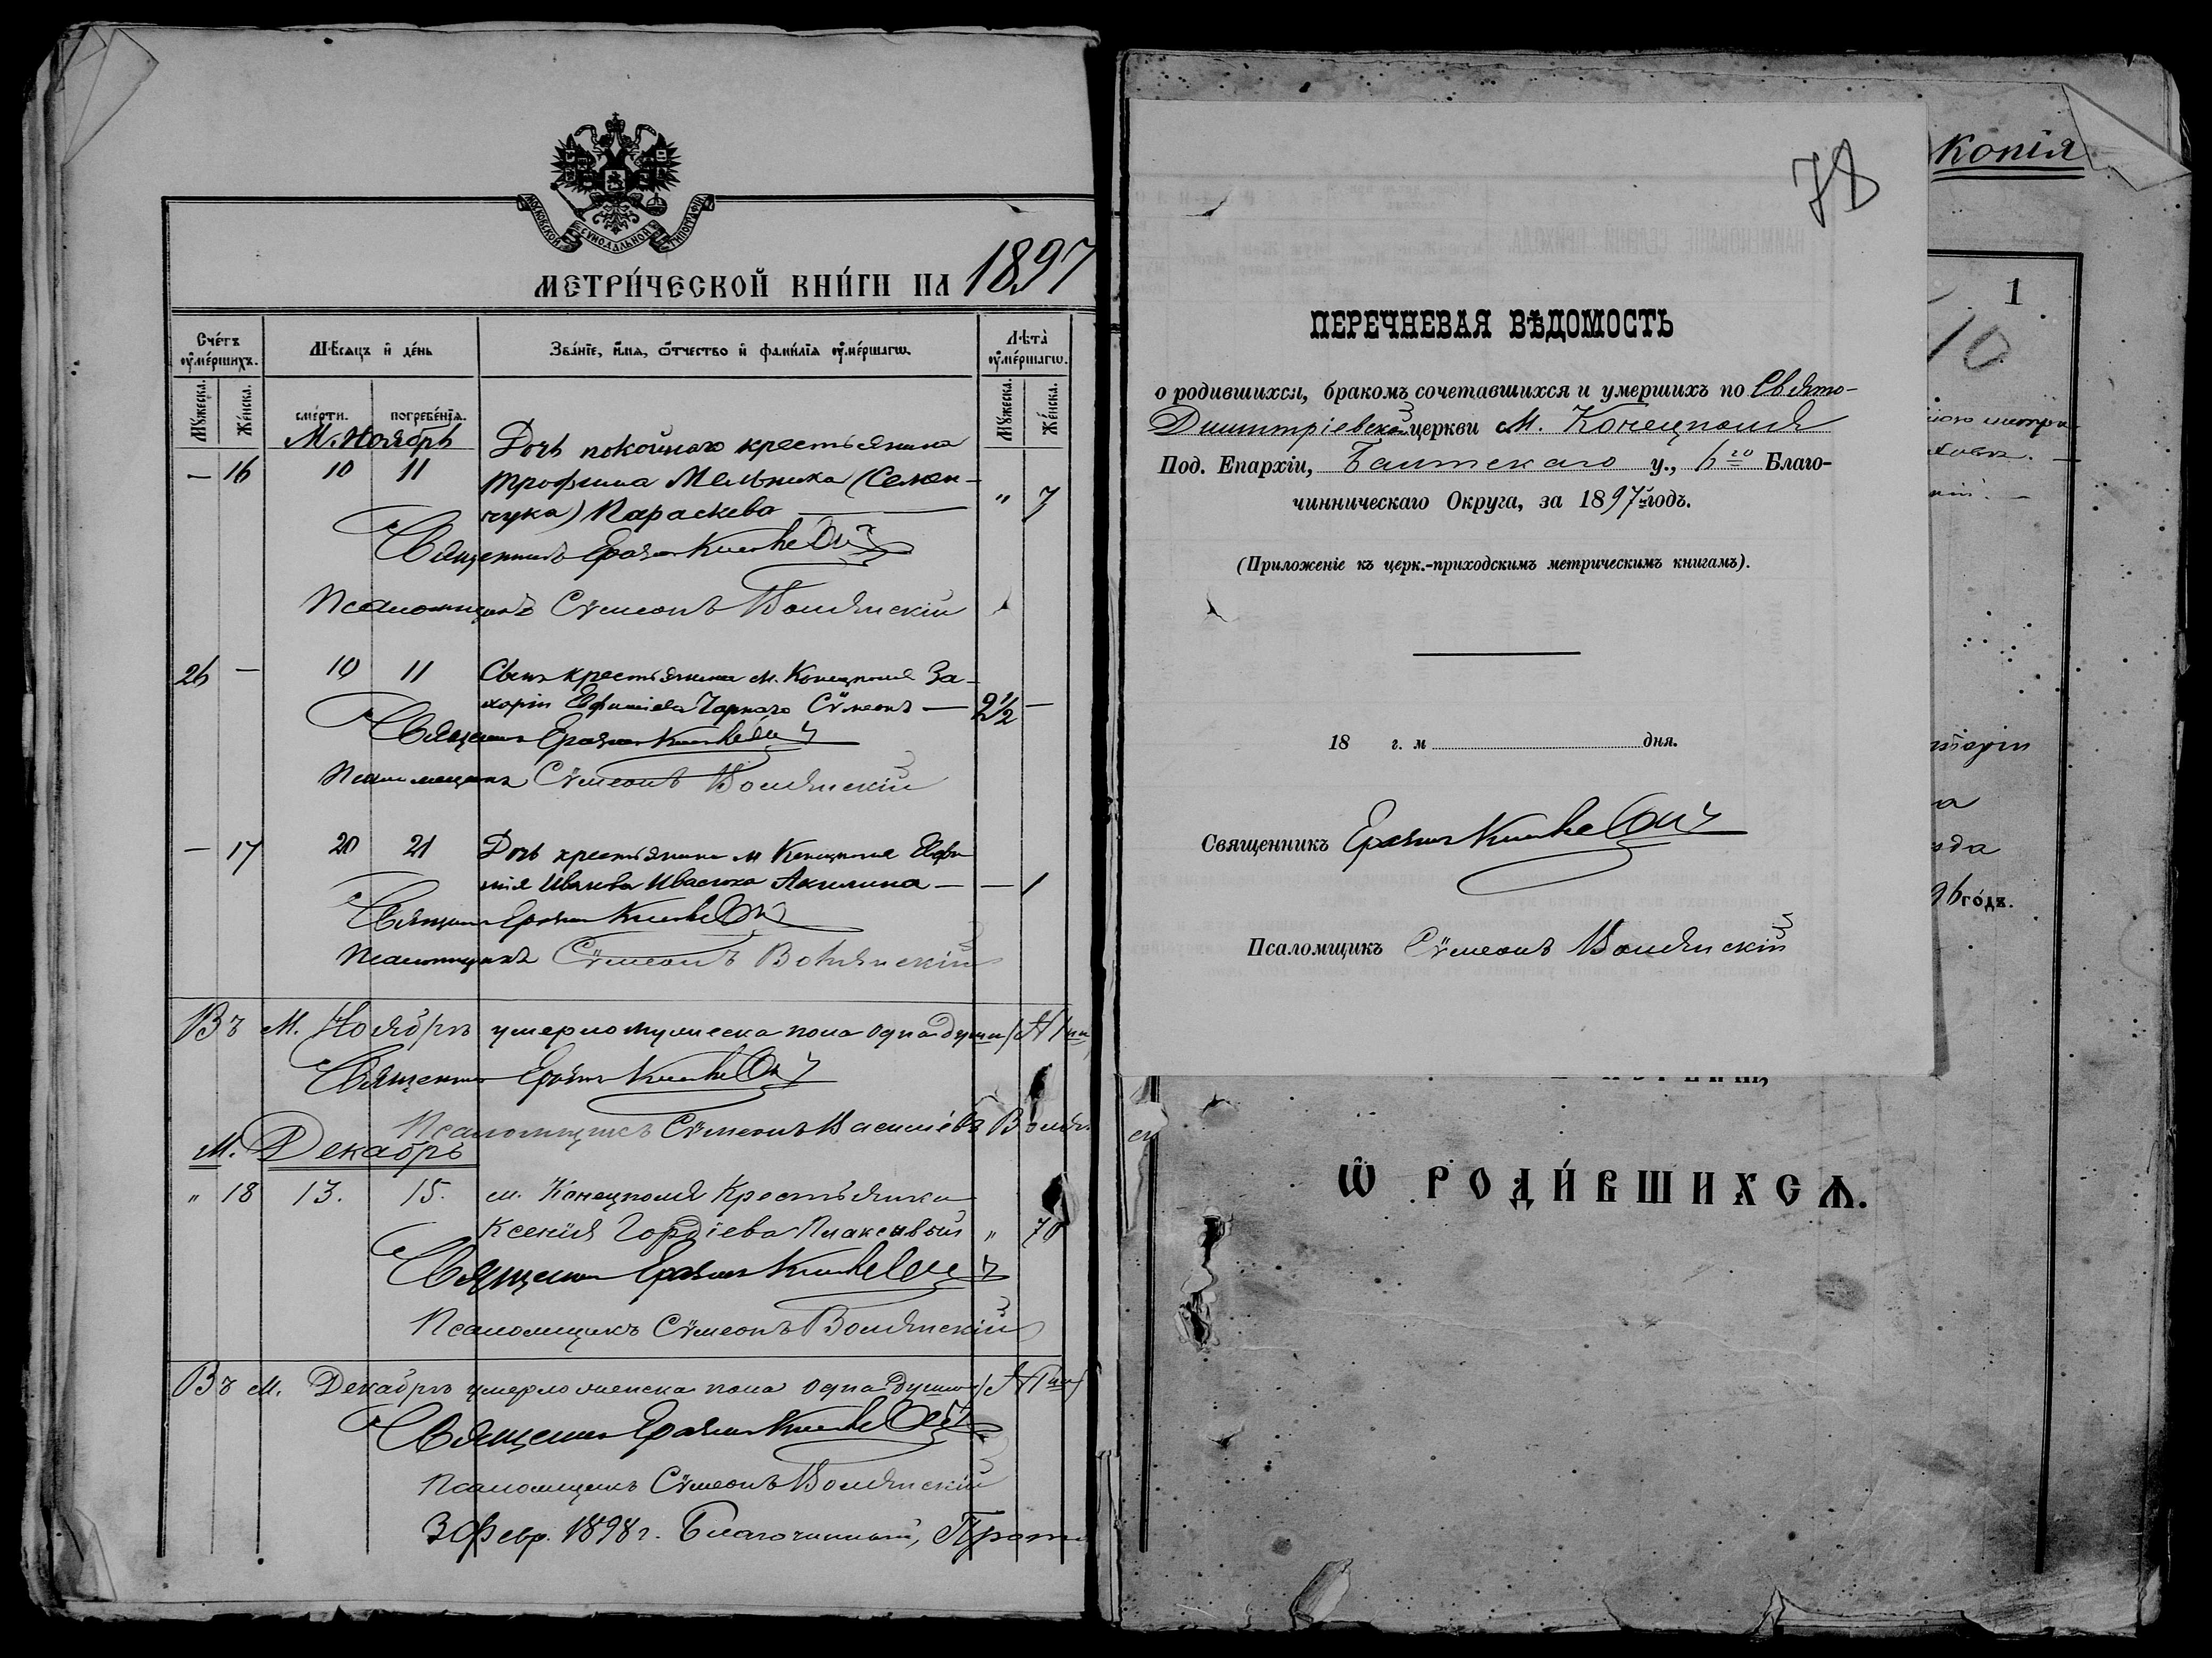 МОСКОВСКОЙ СѴНОДАЛЬНОЙ ТИПОГРАФІИ
МЕТРИ́ЧЕСКОЙ КНИ́ГИ НА 1897
Сче́тъ ᲂу҆ме́ршихъ.
Мѣсѧцъ и҆ де́нь
Зва́нїе, и҆́мѧ, ѻ҆́тчество и҆ фамилїѧ ᲂу҆ме́ршагѡ.
Лѣта̀ ᲂу҆ме́ршагѡ.
Мꙋ́жеска.
Же́нска.
сме́рти.
погребе́нїѧ.
Мꙋ́жеска.
Же́нска.
М. Ноябрь
— 16 10 11 Дочь покойнаго крестьянина
Трофима Мельника (Семен-
чука) Параскева — " 7
Священникъ
Псаломщикъ Сѵмеонъ Волянскій
26 — 10 11 Сынъ крестьянина м. Конецполя За-
харіи Евфиміева Чарнаго Сѵмеонъ — 2½ —
Священникъ
Псаломщикъ Сѵмеонъ Волянскій
— 17 20 21 Дочь крестьянина м Конецполя Евфи
мія Иванова Ивасюка Акилина — — 1
Священникъ
Псаломщикъ Сѵмеонъ Волянскій
Въ М. Ноябрѣ умерло мужеска пола одна душа
Священникъ
Псаломщикъ Сѵмеонъ Василіевъ Волян
М. Декабрь
" 18 13. 15. м. Конецполя Крестьянка
Ксенія Гордіева Плаксивый " 70
Священникъ
Псаломщикъ Сѵмеонъ Волянскій
Въ М. Декабрѣ умерло женска пола одна душа
Священникъ
Псаломщикъ Сѵмеонъ Волянскій
3 Февр. 1898 г. Благочинный, Прото
78
ПЕРЕЧНЕВАЯ ВѢДОМОСТЬ
о родившихся, бракомъ сочетавшихся и умершихъ по Свято-
Димитріевской церкви М. Конецполя
Под. Епархіи, Балтскаго у., 6го Благо-
чинническаго Округа, за 1897 годъ.
(Приложеніе къ церк.-приходскимъ метрическимъ книгамъ).
18 г. м дня.
Священникъ
Псаломщикъ Сѵмеонъ Волянскій
Копія
1
10
96 го́дъ.
Ѡ РОДИ́ВШИХСѦ.